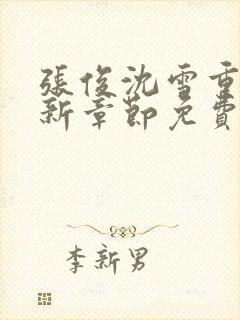 張俊沈雪重
新章節免費
李新男